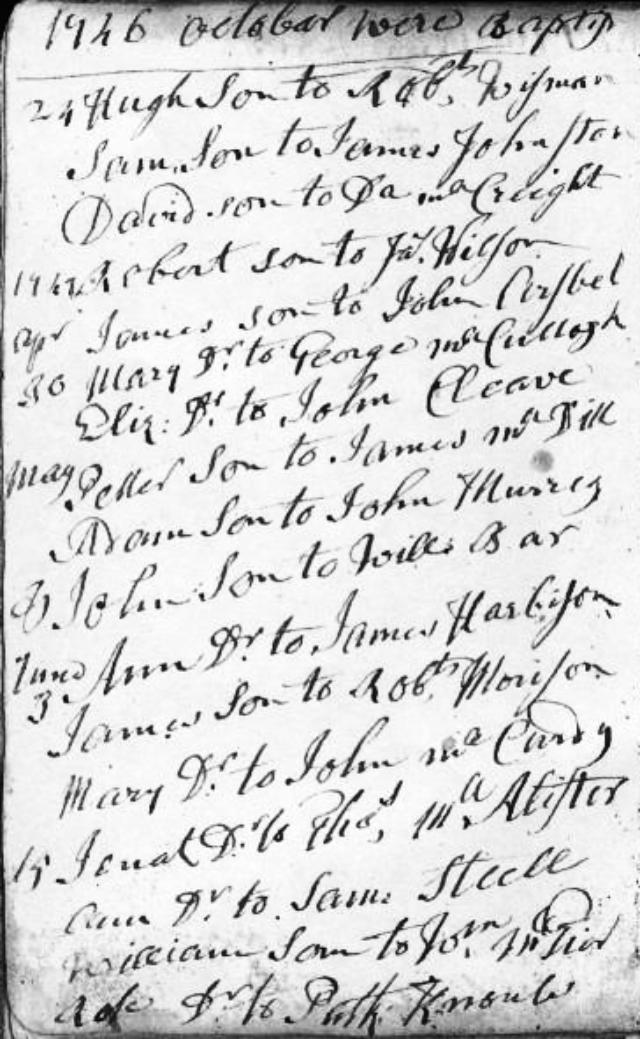 1746 October were Baptis
24 Hugh Son to Robt. Wisman
Sam. Son to James Johnston
David son to Da mcCreight
1747 Robert son to Js. Wilson
apr James son to John
30 Mary Dr. to George mcCullogh
Eliz: Dr. to John Cleave
May Petter Son to James mc Dill
Adam Son to John Murrey
John Son to Will: Bar
June Ann Dr. to James Harbison
3 James Son to Robt. Morison
Mary Dr. to John mc Curdy
15 Jenat Dr. to Thos. Mc Alister
Ann Dr. to Sam: Steell
William Son to Wm.
Dr. to Patk.